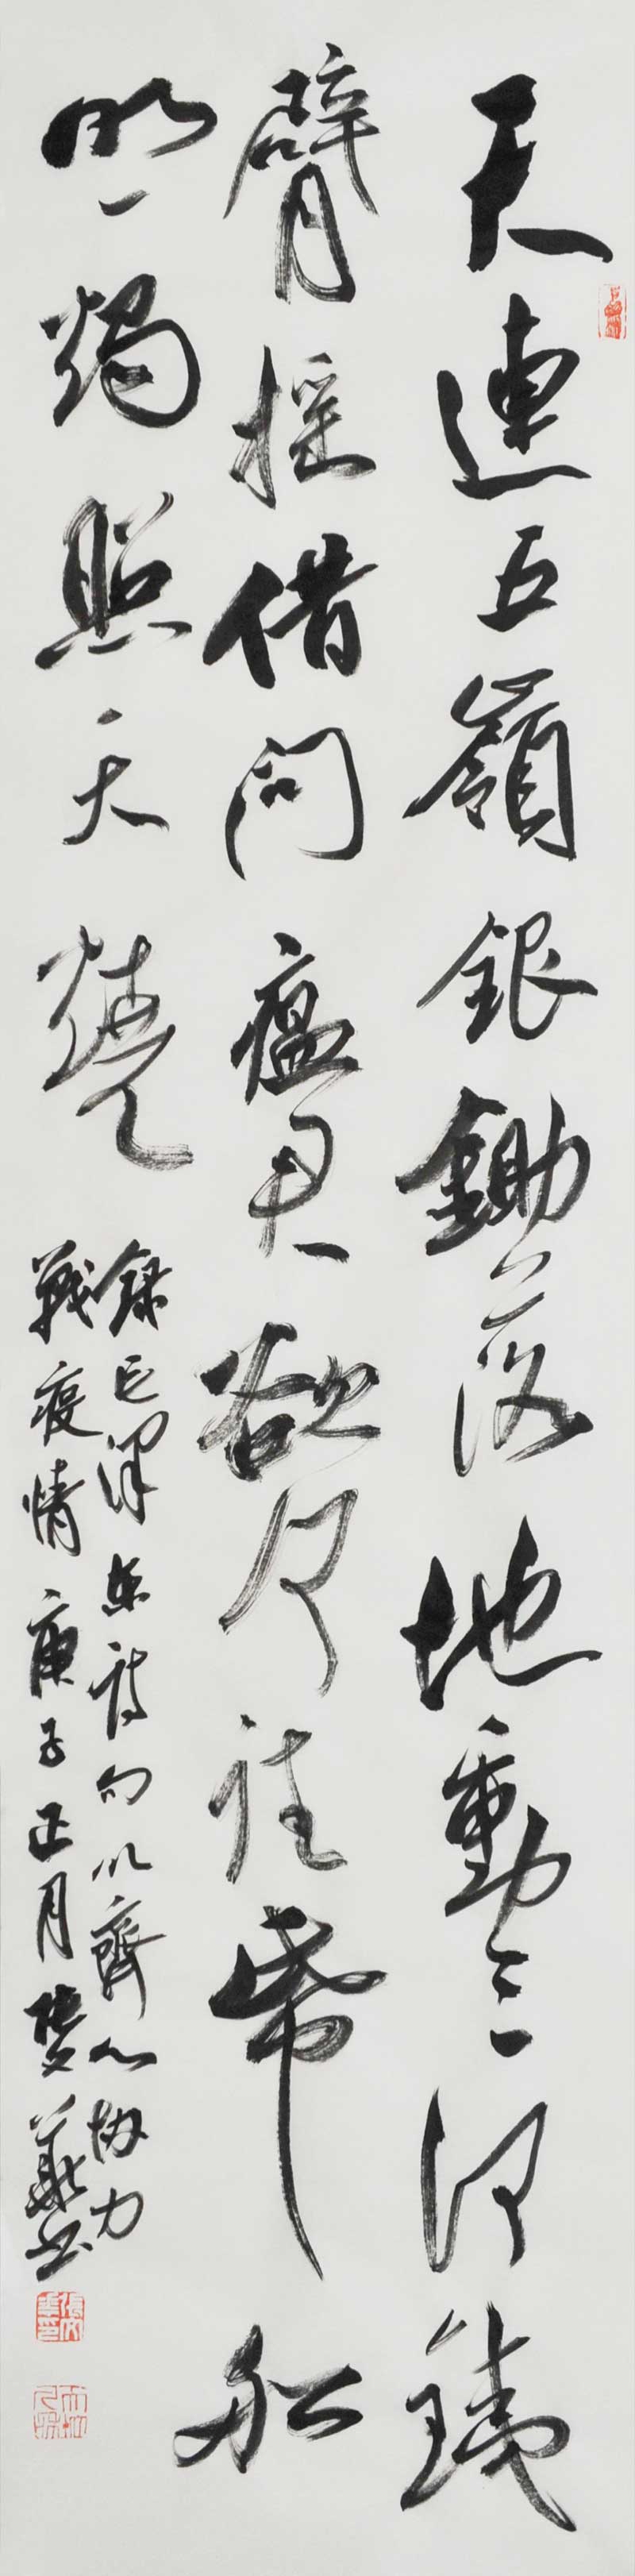 天連五嶺銀鋤落地動三河鐵
臂搖借問瘟君欲何往帋船
明燭照天燒
錄毛澤東詩句以齊心協力
戰疫情庚子正月義書